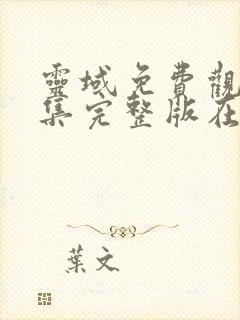 靈域免費觀
集完整版在
葉文